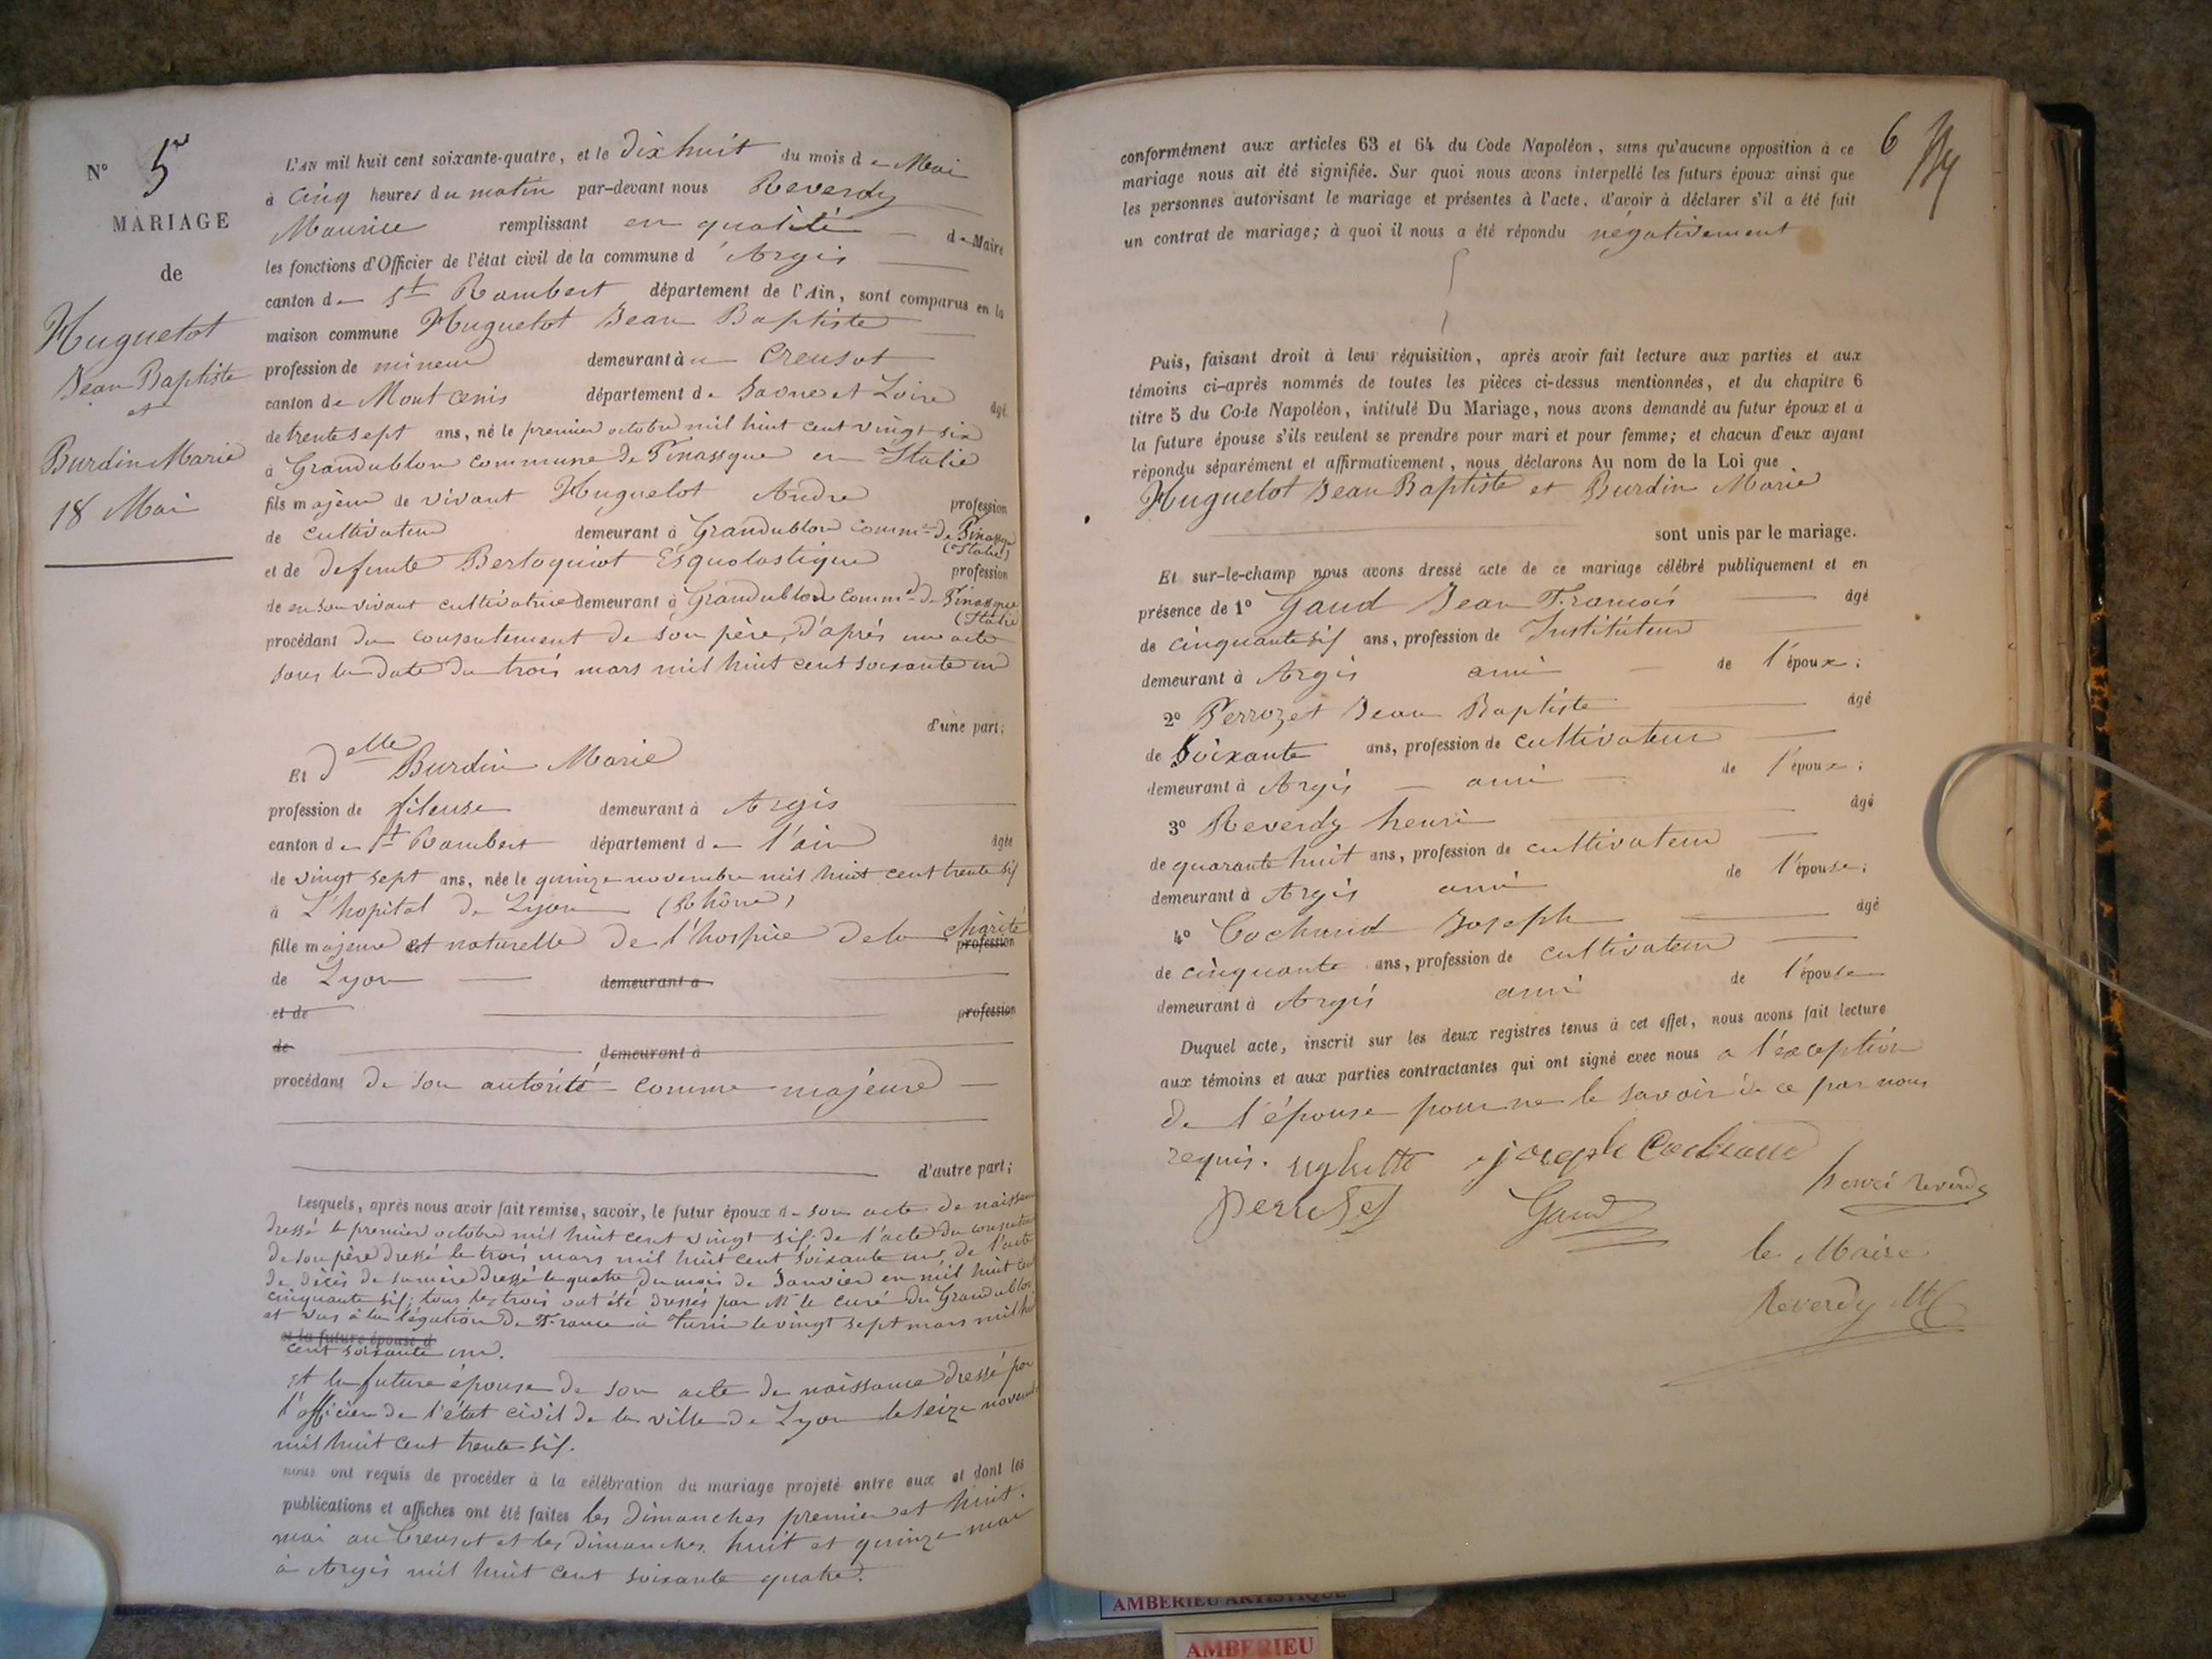 N° 5
MARIAGE
de
Huguetot
Jean Baptiste
et
Burdin Marie
18 Mai
L'AN mil huit cent soixante-quatre, et le dix huit du mois de Mai
à cinq heures du matin par-devant nous Reverdy
Maurice remplissant en qualité de Maire
les fonctions d'Officier de l'état civil de la commune d'Argis
canton de St Rambert département de l'Ain, sont comparus en la
maison commune Huguetot Jean Baptiste
profession de mineur demeurant à au Creusot
canton de Mont Cenis département de Saone et Loire âgé
de trente sept ans, né le premier octobre mil huit cent vingt six
à Grandublon commune de Pinassque en Italie
fils majeur de vivant Huguetot André profession
de cultivateur demeurant à Grandublon comm.ne de Pinassque
(Italie)
et de defunte Bertoquiot Esquolastique profession
de en son vivant cultivatrice demeurant à Grandublon comm.ne de Pinassque
(Italie
procédant du consentement de son père, d'après un acte
sous la date du trois mars mil huit cent soixante un
d'une part;
Et delle Burdin Marie
profession de fileuse demeurant à Argis
canton de St Rambert département de l'ain âgée
de vingt sept ans, née le quinze novembre mil huit cent trente six
à L'hopital de Lyon (Rhône)
fille majeure et naturelle de l'hospice de la charité
profession
de Lyon demeurant à
et de profession
de demeurant à
procédant de son autorité comme majeure
d'autre part;
Lesquels, après nous avoir fait remise, savoir, le futur époux de son acte de naissance
dressé le premier octobre mil huit cent vingt six; de l'acte du consentement
de son père dressé le trois mars mil huit cent soixante un, de l'acte
de décès de sa mère dressé le quatre du mois de Janvier en mil huit cent
cinquante six; tous les trois ont été dressés par Mr le curé du Grandublon
et vus à la légation de France à Turin le vingt sept mars mil huit
et la future épouse d
cent soixante un.
et la future épouse de son acte de naissance dressé par
l'officier de l'état civil de la ville de Lyon le seize novembre
mil huit cent trente six.
nous ont requis de procéder à la célébration du mariage projeté entre eux et dont les
publications et affiches ont été faites les dimanches premier et huit
mai au Creusot et les dimanches huit et quinze mai
à Argis mil huit cent soixante quatre.
6
conformément aux articles 63 et 64 du Code Napoléon, sans qu'aucune opposition à ce
mariage nous ait été signifiée. Sur quoi nous avons interpellé les futurs époux ainsi que
les personnes autorisant le mariage et présentes à l'acte, d'avoir à déclarer s'il a été fait
un contrat de mariage; à quoi il nous a été répondu négativement
Puis, faisant droit à leur réquisition, après avoir fait lecture aux parties et aux
témoins ci-après nommés de toutes les pièces ci-dessus mentionnées, et du chapitre 6
titre 5 du Code Napoléon, intitulé Du Mariage, nous avons demandé au futur époux et à
la future épouse s'ils veulent se prendre pour mari et pour femme; et chacun d'eux ayant
répondu séparément et affirmativement, nous déclarons Au nom de la Loi que
Huguetot Jean Baptiste et Burdin Marie
sont unis par le mariage.
Et sur-le-champ nous avons dressé acte de ce mariage célébré publiquement et en
présence de 1° Gaud Jean François âgé
de cinquante six ans, profession de Instituteur
demeurant à Argis ami de l'époux;
2° Perrozet Jean Baptiste âgé
de Soixante ans, profession de cultivateur
demeurant à Argis ami de l'époux;
3° Reverdy henri âgé
de quarante huit ans, profession de cultivateur
demeurant à Argis ami de l'épouse;
4° Cochand Joseph âgé
de cinquante ans, profession de cultivateur
demeurant à Argis ami de l'épouse
Duquel acte, inscrit sur les deux registres tenus à cet effet, nous avons fait lecture
aux témoins et aux parties contractantes qui ont signé avec nous a l'exception
de l'épouse pour ne le savoir de ce par nous
requis. ughetto joseph Cochand
henri reverdy
perrozet Gaud
le Maire
Reverdy M
AMBERIEU ARTISTIQUE
AMBERIEU